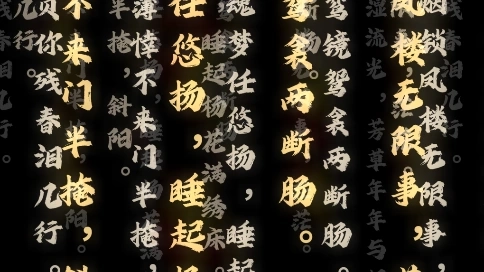 锁凤楼无限事，
凤楼无限事，
湿流光，芳草年年与
鸾镜鸳衾两断肠。
鸳衾两断肠。
魂梦任悠扬，睡起
睡起杨花满绣床
任悠扬，睡起杨
薄悻不来门半掩，
半掩，斜阳。
不来门半掩，斜
负你残春泪几行。
几行。